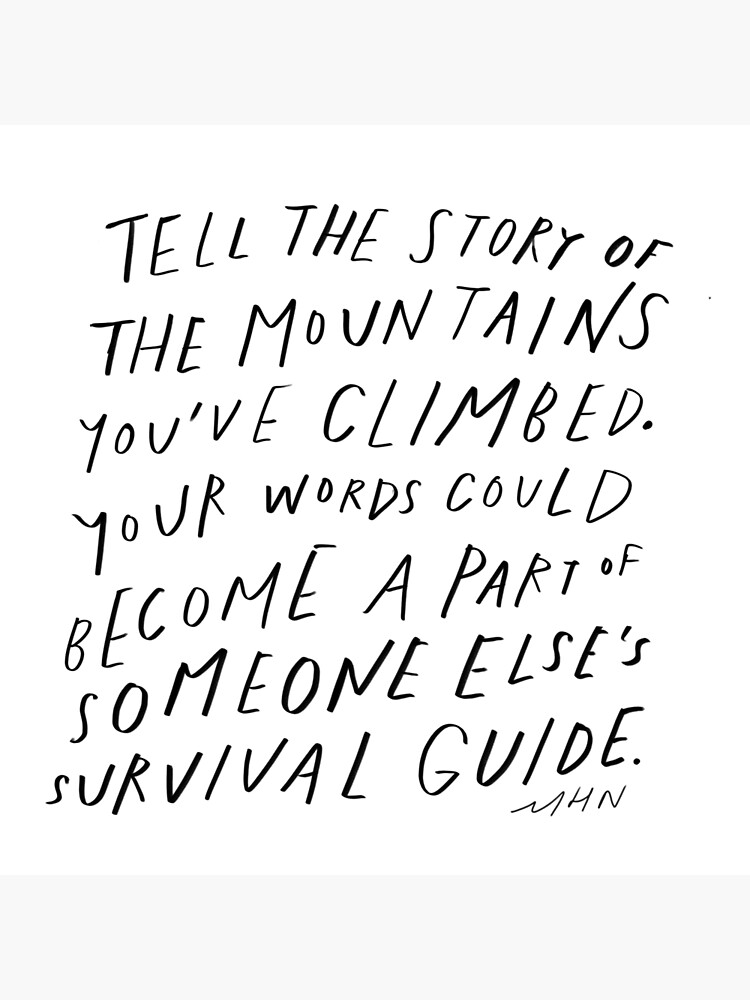 TELL THE STORY OF
THE MOUNTAINS
YOU'VE CLIMBED.
YOUR WORDS COULD
BECOME A PART OF
SOMEONE ELSE'S
SURVIVAL GUIDE.
MHN